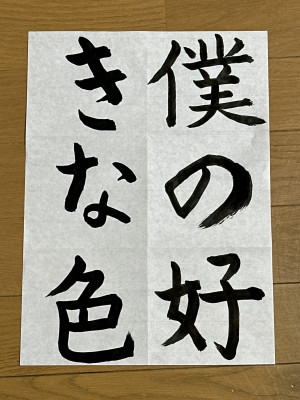 僕の好
きな色